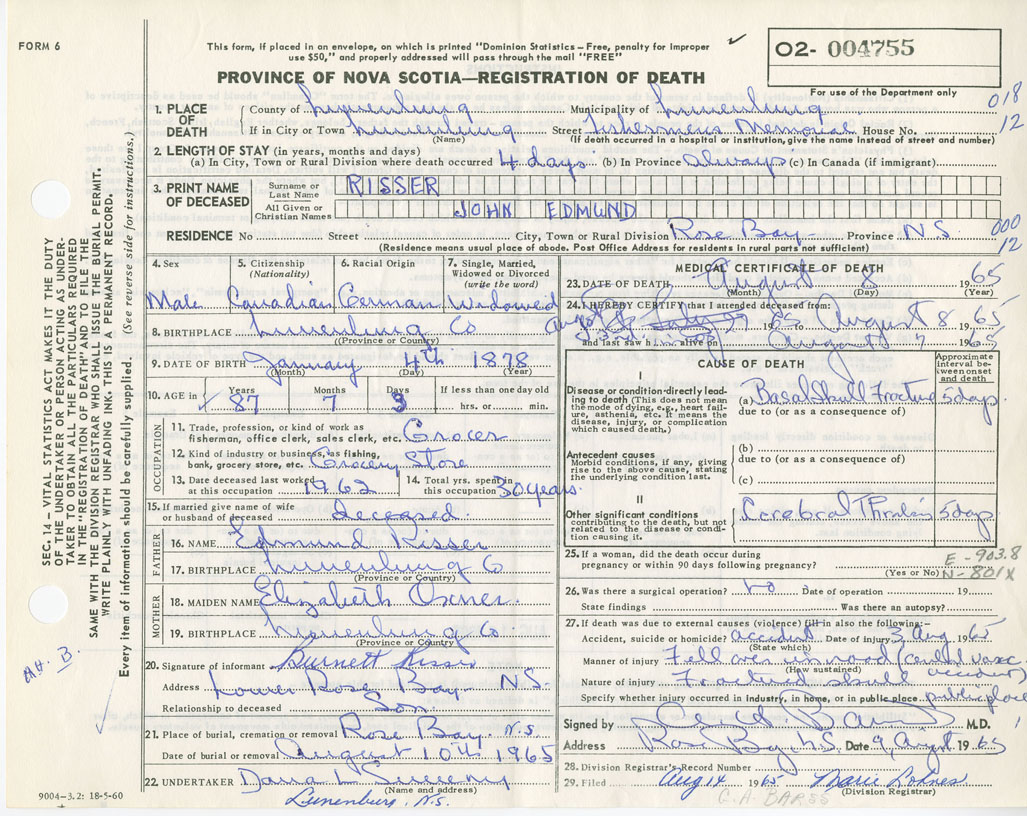 FORM 6
This form, if placed in an envelope, on which is printed "Dominion Statistics – Free, penalty for improper
use $50," and properly addressed will pass through the mail "FREE"
PROVINCE OF NOVA SCOTIA—REGISTRATION OF DEATH
O2- 004755
For use of the Department only
018
12
1. PLACE OF DEATH
County of Lunenburg Municipality of Lunenburg
If in City or Town Lunenburg Street Fishermens Memorial House No.
(Name) (If death occurred in a hospital or institution, give the name instead of street and number)
2. LENGTH OF STAY (in years, months and days)
(a) In City, Town or Rural Division where death occurred 4 days (b) In Province always (c) In Canada (if immigrant)
3. PRINT NAME OF DECEASED
Surname or Last Name RISSER
All Given or Christian Names JOHN EDMUND
RESIDENCE No Street City, Town or Rural Division Rose Bay Province N S
(Residence means usual place of abode. Post Office Address for residents in rural parts not sufficient)
000
12
4. Sex 5. Citizenship (Nationality) 6. Racial Origin 7. Single, Married, Widowed or Divorced (write the word)
Male Canadian German Widowed
8. BIRTHPLACE Lunenburg Co
(Province or County)
9. DATE OF BIRTH January 4th 1878
(Month) (Day) (Year)
10. AGE in Years Months Days If less than one day old
87 7 3 hrs. or min.
OCCUPATION
11. Trade, profession, or kind of work as
fisherman, office clerk, sales clerk, etc. Grocer
12. Kind of industry or business, as fishing,
bank, grocery store, etc. Grocery Store
13. Date deceased last worked at this occupation 1962
14. Total yrs. spent in this occupation 30 years
15. If married give name of wife
or husband of deceased deceased
FATHER
16. NAME Edmund Risser
17. BIRTHPLACE Lunenburg Co
(Province or Country)
MOTHER
18. MAIDEN NAME Elizabeth Oxner
19. BIRTHPLACE Lunenburg Co
(Province or Country)
20. Signature of informant Burnett Risser
Address Lower Rose Bay N S
Relationship to deceased Son
21. Place of burial, cremation or removal Rose Bay N.S.
Date of burial or removal August 10th 1965
22. UNDERTAKER Dana L Sweeny
(Name and address)
Lunenburg, N.S.
9004–3.2: 18-5-60
MEDICAL CERTIFICATE OF DEATH
23. DATE OF DEATH August 8 1965
(Month) (Day) (Year)
24. I HEREBY CERTIFY that I attended deceased from:
1965 to August 8 1965
and last saw him alive on August 7 1965
CAUSE OF DEATH
Approximate interval between onset and death
I
Disease or condition directly leading to death (This does not mean the mode of dying, e.g., heart failure, asthenia, etc. It means the disease, injury, or complication which caused death.)
(a) Basal Skull Fracture 5 days
due to (or as a consequence of)
Antecedent causes
Morbid conditions, if any, giving rise to the above cause, stating the underlying condition last.
(b)
due to (or as a consequence of)
(c)
II
Other significant conditions contributing to the death, but not related to the disease or condition causing it.
Cerebral 5 days
25. If a woman, did the death occur during
pregnancy or within 90 days following pregnancy? (Yes or No)
E – 903.8
N – 801X
26. Was there a surgical operation? no Date of operation 19
State findings Was there an autopsy?
27. If death was due to external causes (violence) fill in also the following:–
Accident, suicide or homicide? accident Date of injury 3 Aug 1965
(State which)
Manner of injury Fell over
(How sustained)
Nature of injury Fractured skull
Specify whether injury occurred in industry, in home, or in public place public place
Signed by M.D.
Address Rose Bay, N.S. Date 9 August 1965
28. Division Registrar's Record Number
29. Filed Aug 14 1965 Marie Lohnes
(Division Registrar)
C. A. BARSS
SEC. 14 – VITAL STATISTICS ACT MAKES IT THE DUTY
OF THE UNDERTAKER OR PERSON ACTING AS UNDER-
TAKER TO OBTAIN ALL THE PARTICULARS REQUIRED
IN THE "REGISTRATION OF DEATH" AND TO FILE THE
SAME WITH THE DIVISION REGISTRAR WHO SHALL ISSUE THE BURIAL PERMIT.
WRITE PLAINLY WITH UNFADING INK. THIS IS A PERMANENT RECORD.
Every item of information should be carefully supplied. (See reverse side for instructions.)